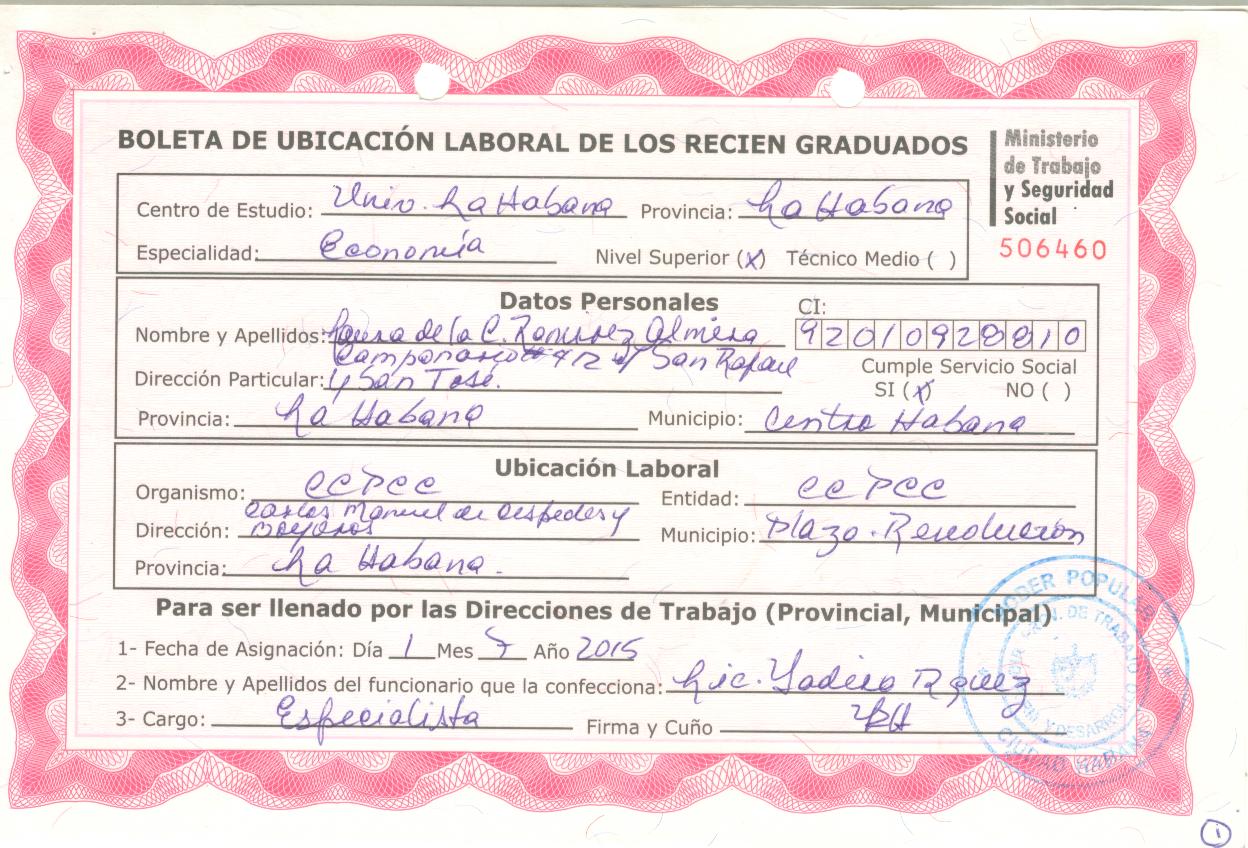 BOLETA DE UBICACIÓN LABORAL DE LOS RECIEN GRADUADOS
Ministerio
de Trabajo
y Seguridad
Social
506460
Centro de Estudio: Univ. La Habana Provincia: La Habana
Especialidad: Economía Nivel Superior (x) Técnico Medio ( )
Datos Personales
CI:
Nombre y Apellidos: Laura de la C. Ramirez Almira 92010928810
Campanario # 412 e/ San Rafael
Dirección Particular: y San José.
Cumple Servicio Social
SI (x) NO ( )
Provincia: La Habana Municipio: Centro Habana
Ubicación Laboral
Organismo: CCPCC Entidad: CCPCC
Carlos Manuel de Céspedes y
Dirección: Boyeros Municipio: Plaza. Revolución
Provincia: La Habana.
Para ser llenado por las Direcciones de Trabajo (Provincial, Municipal)
1- Fecha de Asignación: Día 1 Mes 7 Año 2015
2- Nombre y Apellidos del funcionario que la confecciona: Lic. Yadira Rguez
3- Cargo: Especialista Firma y Cuño
PODER POPULAR
DE TRABAJO
Y DESARROLLO
CIUDAD HABANA
1